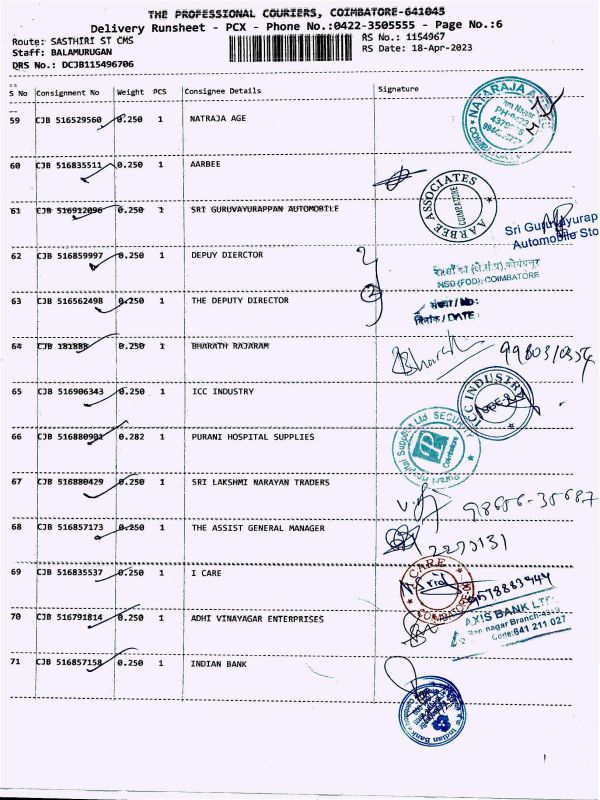 THE PROFESSIONAL COURIERS, COIMBATORE-641045
Delivery Runsheet - PCX - Phone No.:0422-3505555 - Page No.:6
Route: SASTHIRI ST CMS
RS No.: 1154967
Staff: BALAMURUGAN
RS Date: 18-Apr-2023
DRS No.: DCJB115496706
S No Consignment No Weight PCS Consignee Details Signature
59 CJB 516529560 0.250 1 NATRAJA AGE
60 CJB 516835511 0.250 1 AARBEE
AARBEE ASSOCIATES
COIMBATORE
61 CJB 516912096 0.250 1 SRI GURUVAYURAPPAN AUTOMOBILE
Sri Guruvayurap
Automobile Sto
62 CJB 516859997 0.250 1 DEPUY DIERCTOR
NSD (FOD), COIMBATORE
63 CJB 516562498 0.250 1 THE DEPUTY DIRECTOR
संख्या / NO:
दिनांक / DATE:
64 CJB 181888 0.250 1 BHARATH RAJARAM
65 CJB 516906343 0.250 1 ICC INDUSTRY
ICC INDUSTRY
66 CJB 516880901 0.282 1 PURANI HOSPITAL SUPPLIES
Purani Hospital Supplies Ltd. SECURITY
Coimbatore
67 CJB 516880429 0.250 1 SRI LAKSHMI NARAYAN TRADERS
68 CJB 516857173 0.250 1 THE ASSIST GENERAL MANAGER
69 CJB 516835537 0.250 1 I CARE
I CARE
COIMBATORE
70 CJB 516791814 0.250 1 ADHI VINAYAGAR ENTERPRISES
AXIS BANK LTD.
nagar Branch
Code:641 211 027
71 CJB 516857158 0.250 1 INDIAN BANK
Indian Bank